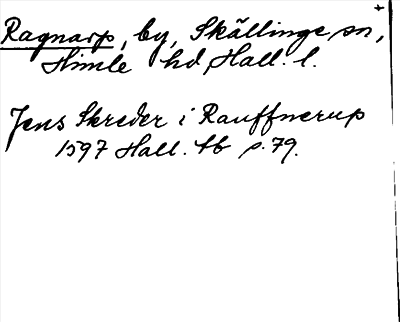 Ragnarp, by, Skällinge sn,
Himle hd, Hall. l.
Jens Skreder i Rauffnerup
1597 Hall. tb s. 79.